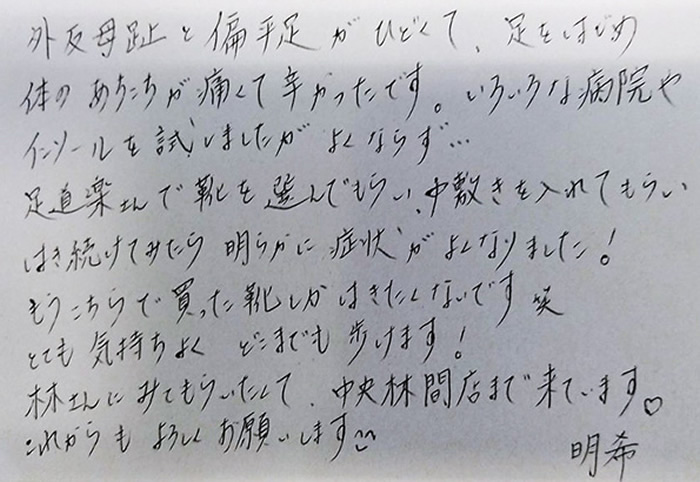 外反母趾と偏平足がひどくて、足をはじめ
体のあちこちが痛くて辛かったです。いろいろな病院や
インソールを試しましたがよくならず…
足道楽さんで靴を選んでもらい、中敷きを入れてもらい
はき続けてみたら明らかに症状がよくなりました!
もうこちらで買った靴しかはきたくないです 笑
とても気持ちよくどこまでも歩けます!
林さんにみてもらいたくて、中央林間店まで来ています。♡
これからもよろしくお願いします
明希